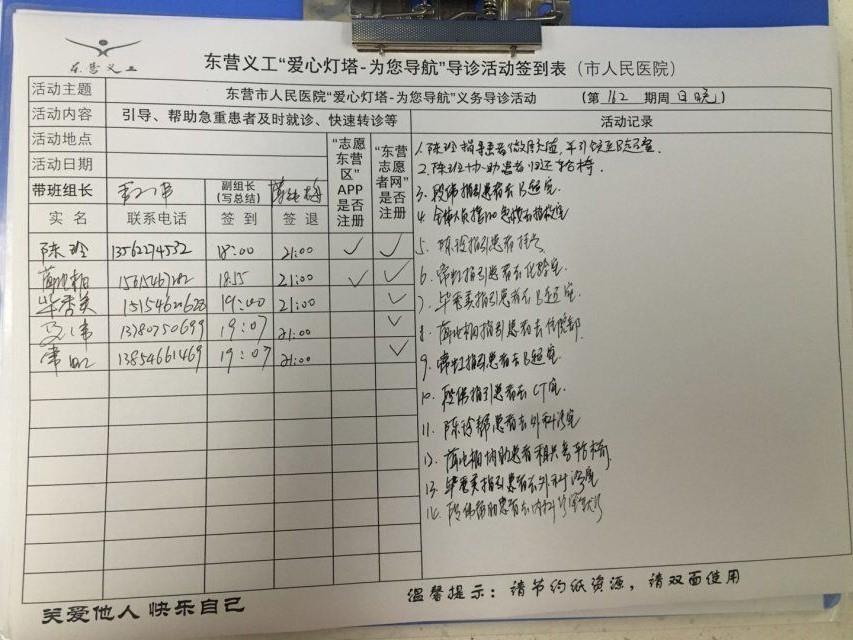 东营义工
东营义工“爱心灯塔-为您导航”导诊活动签到表（市人民医院）
活动主题 东营市人民医院“爱心灯塔-为您导航”义务导诊活动 (第 162 期周 日晚)
活动内容 引导、帮助急重患者及时就诊、快速转诊等
活动地点
活动日期
带班组长 副组长(写总结)
“志愿东营区”APP是否注册
“东营志愿者网”是否注册
实名 联系电话 签到 签退
陈玲 13562274532 18:00 21:00 ✓ ✓
15615467282 18:55 21:00 ✓ ✓
毕秀美 15154621628 19:00 21:00 ✓
13780750699 19:07 21:00 ✓
常虹 13854661469 19:07 21:00 ✓
活动记录
1. 陈玲指导患者
2. 陈玲协助患者归还轮椅.
3. 段伟指引患者去B超室.
4.
5. 陈玲指引患者挂号
6. 常虹指引患者去化验室.
7. 毕秀美指引患者去B超室.
8. 指引患者去住院部.
9. 常虹指引患者去B超室
10. 段伟指引患者去CT室.
11. 陈玲帮患者去外科诊室
12. 协助患者租共享轮椅
13. 毕秀美指引患者去外科诊室
14. 段伟协助患者去内科
关爱他人 快乐自己
温馨提示：请节约纸资源，请双面使用